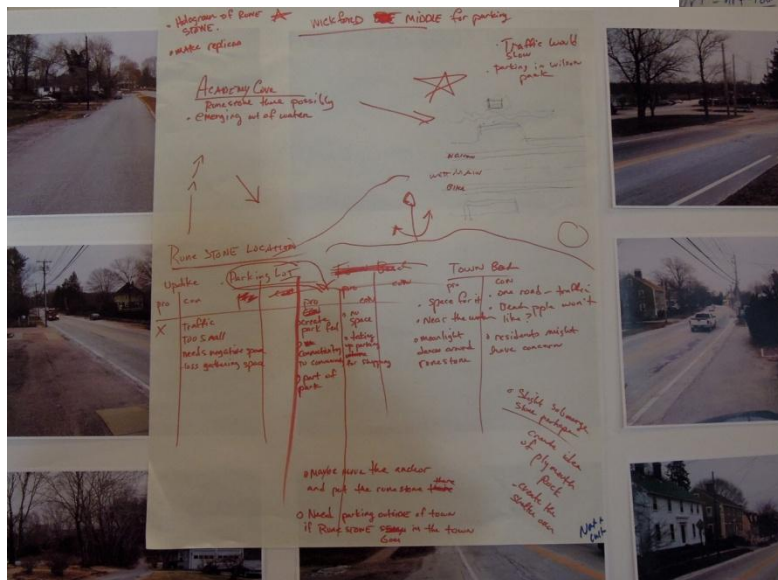 • Hologram of RUNE
STONE.
• make replicas
WICKFORD MIDDLE for parking
• Traffic would
slow
• parking in Wilson
park
ACADEMY Cove
Runestone there possibly
• emerging out of water
WEST MAIN
Bike
RUNE STONE LOCATION
Updike
pro con
X Traffic
Too small
needs negative space
less gathering space
Parking Lot
pro
create
park feel
connectivity
to community
• part of
park
con
• no
space
• taking
up parking
for shopping
Town Beach
pro con
• space for it
• Near the water
• moonlight
dance around
runestone
• one road in traffic
• Beach people won't
like?!
• residents might
have concern
• Slight submerge
stone perhaps
create idea
of plymouth
Rock
• Maybe move the anchor
and put the runestone there
• Need parking outside of town
if Rune STONE in the town